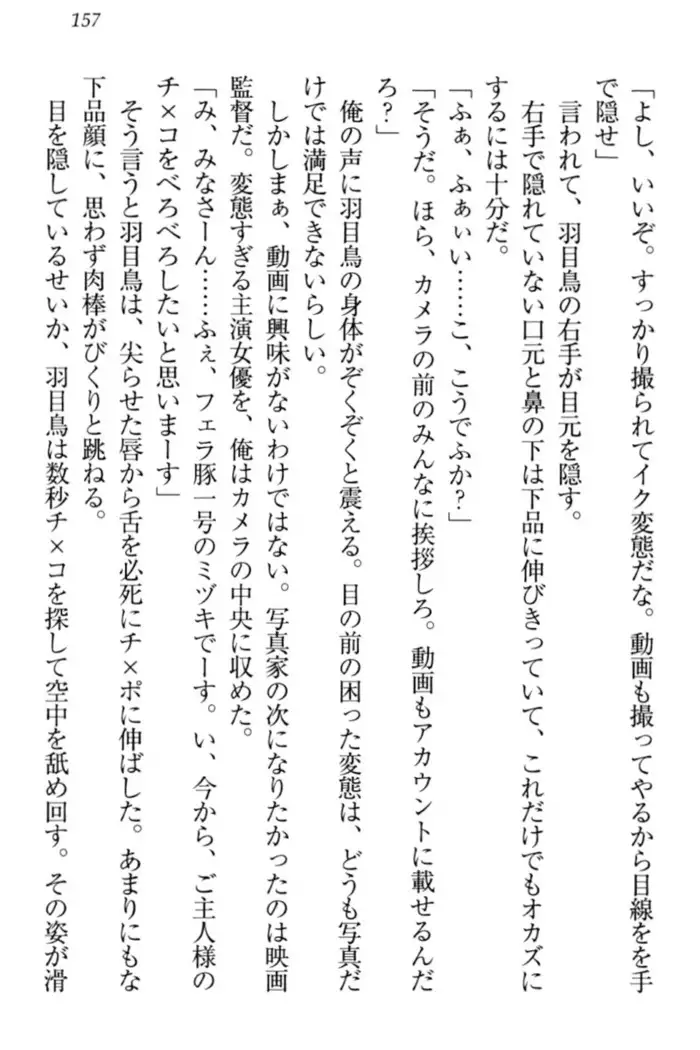 157
「よし、いいぞ。すっかり撮られてイク変態だな。動画も撮ってやるから目線をを手
で隠せ」
言われて、羽目鳥の右手が目元を隠す。
右手で隠れていない口元と鼻の下は下品に伸びきっていて、これだけでもオカズに
するには十分だ。
「ふぁ、ふぁぃい……こ、こうでふか？」
「そうだ。ほら、カメラの前のみんなに挨拶しろ。動画もアカウントに載せるんだ
ろ？」
俺の声に羽目鳥の身体がぞくぞくと震える。目の前の困った変態は、どうも写真だ
けでは満足できないらしい。
しかしまぁ、動画に興味がないわけではない。写真家の次になりたかったのは映画
監督だ。変態すぎる主演女優を、俺はカメラの中央に収めた。
「み、みなさーん……ふぇ、フェラ豚一号のミヅキでーす。い、今から、ご主人様の
チ×コをべろべろしたいと思いまーす」
そう言うと羽目鳥は、尖らせた唇から舌を必死にチ×ポに伸ばした。あまりにもな
下品顔に、思わず肉棒がびくりと跳ねる。
目を隠しているせいか、羽目鳥は数秒チ×コを探して空中を舐め回す。その姿が滑